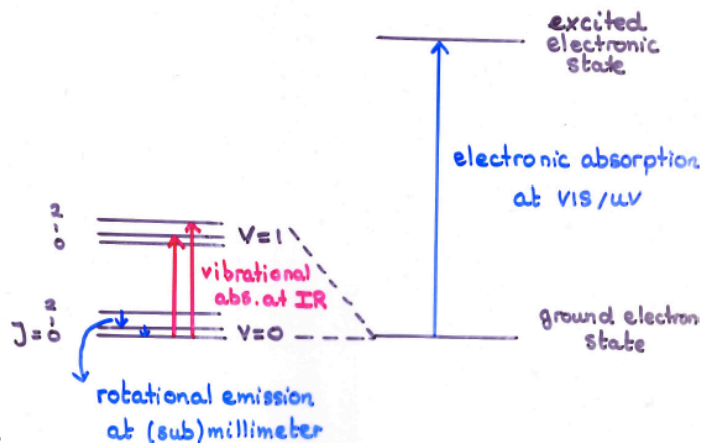 excited
electronic
state
electronic absorption
at VIS/UV
2
1
0
V=1
vibrational
abs. at IR
2
1
J=0
V=0
ground electron
state
rotational emission
at (sub)millimeter